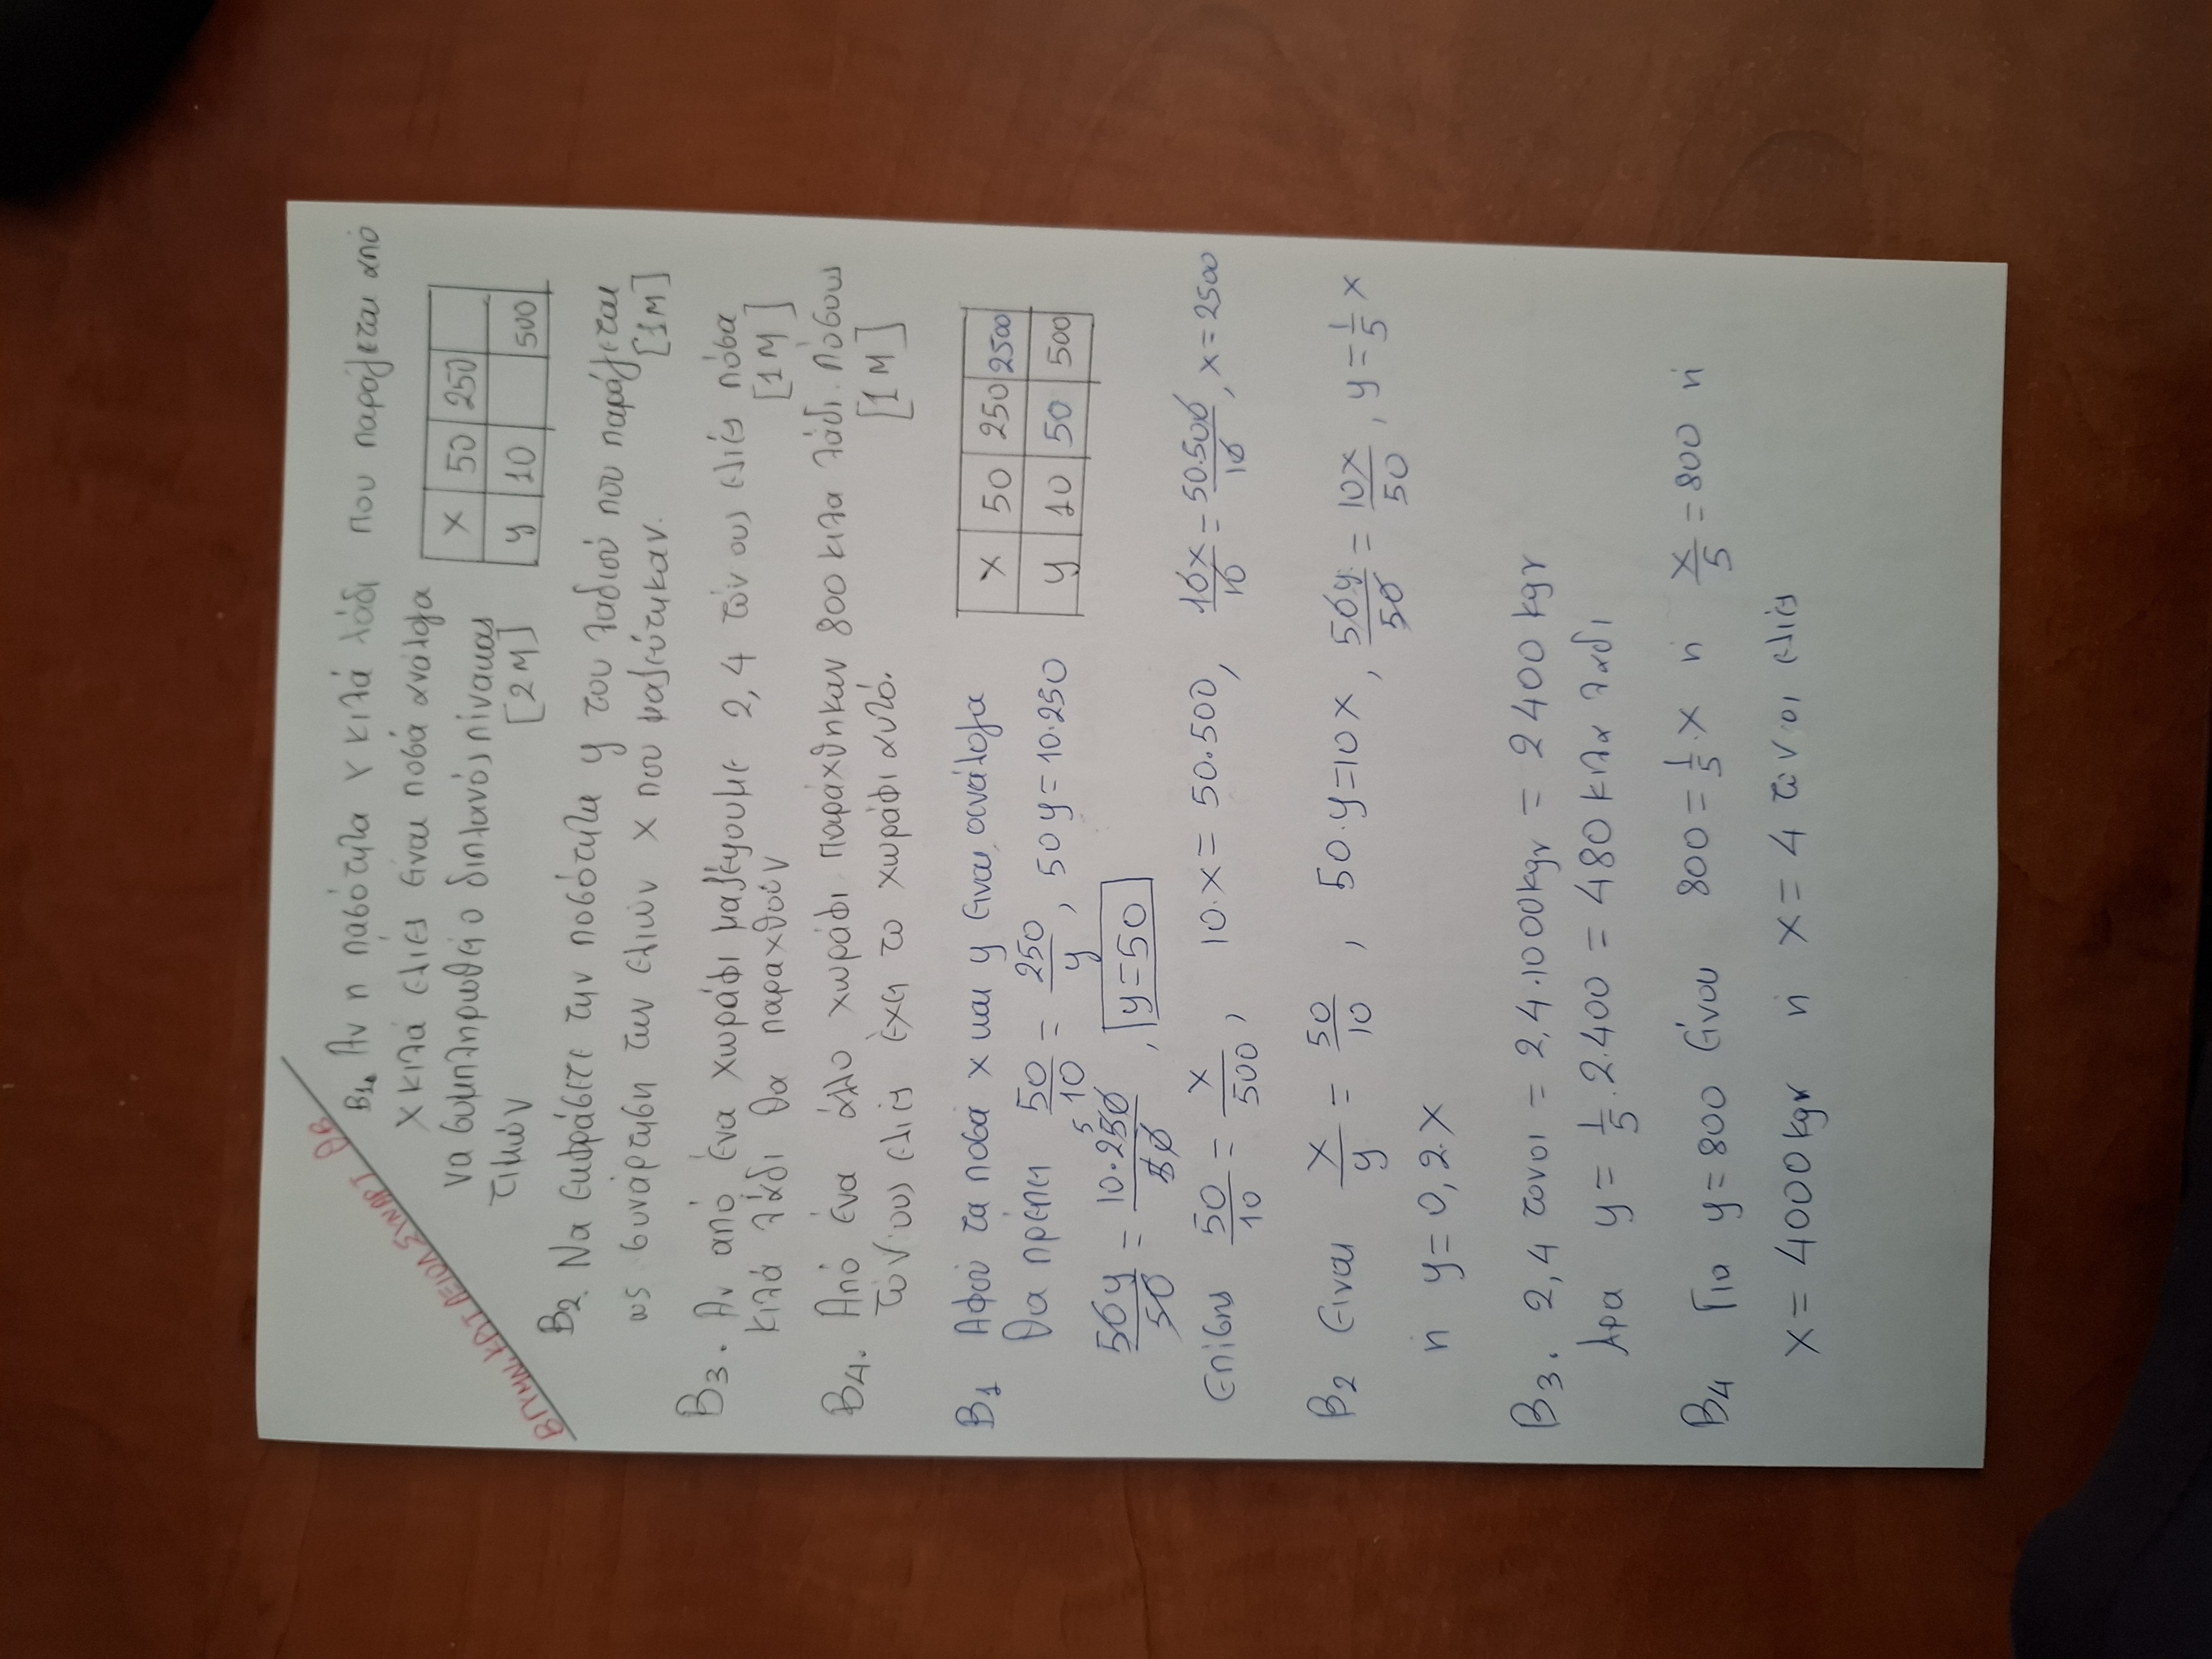 Β1. Αν η ποσότητα y κιλά λάδι που παράγεται από
x κιλά ελιές είναι ποσά ανάλογα
να συμπληρωθεί ο διπλανός πίνακας
τιμών [2Μ]
x 50 250
y 10 500
Β2. Να εκφράσετε την ποσότητα y του λαδιού που παράγεται
ως συνάρτηση των ελιών x που μαζεύτηκαν. [1Μ]
Β3. Αν από ένα χωράφι μαζέψουμε 2,4 τόνους ελιές πόσα
κιλά λάδι θα παραχθούν [1Μ]
Β4. Από ένα άλλο χωράφι παράχθηκαν 800 κιλα λάδι. Πόσους
τόνους ελιές έχει το χωράφι αυτό. [1Μ]
Β1 Αφού τα ποσά x και y είναι ανάλογα
Θα πρέπει 50/10 = 250/y, 50y = 10·250
50y/50 = 10·250/50, y=50
x 50 250 2500
y 10 50 500
Επίσης 50/10 = x/500, 10·x = 50·500, 10x/10 = 50·500/10, x=2500
Β2 Είναι x/y = 50/10, 50·y=10x, 50y/50 = 10x/50, y=1/5 x
ή y=0,2·x
Β3. 2,4 τονοι = 2,4·1000kgr = 2400kgr
Άρα y = 1/5·2.400 = 480 κιλα λαδι
Β4 Για y=800 είναι 800=1/5·x ή x/5=800 ή
x=4000kgr ή x=4 τόνοι ελιές